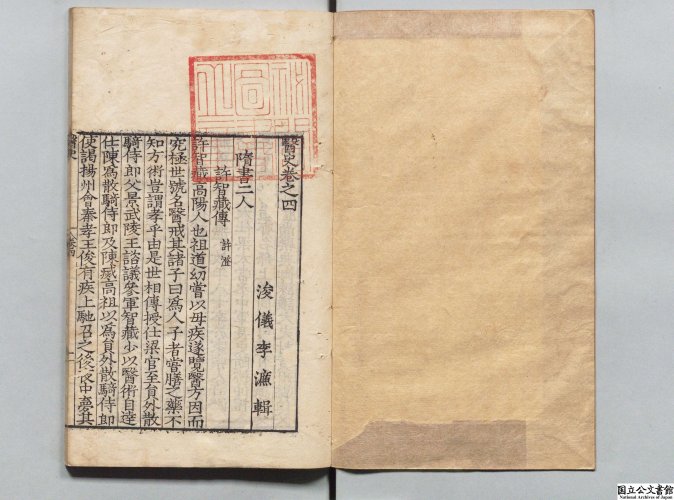 醫史卷之四
浚儀李濂輯
隋書二人
許智藏傳 許澄
許智藏高陽人也祖道幼嘗以母疾遂覽醫方因而
究極世號名醫戒其諸子曰為人子者嘗膳之藥不
知方術豈謂孝乎由是世相傳授仕梁官至員外散
騎侍郎父景武陵王諮議參軍智藏少以醫術自達
仕陳為散騎侍郎及陳滅高祖以為員外散騎侍郎
使謁揚州會秦孝王俊有疾上馳召之後夜中夢其
醫史
国立公文書館
National Archives of Japan